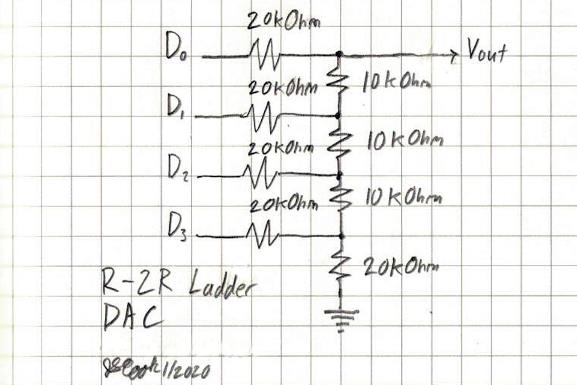 20kOhm
D₀
Vout
20kOhm
10kOhm
D₁
20kOhm
10kOhm
D₂
20kOhm
10kOhm
D₃
20kOhm
R-2R Ladder
DAC
1/2020